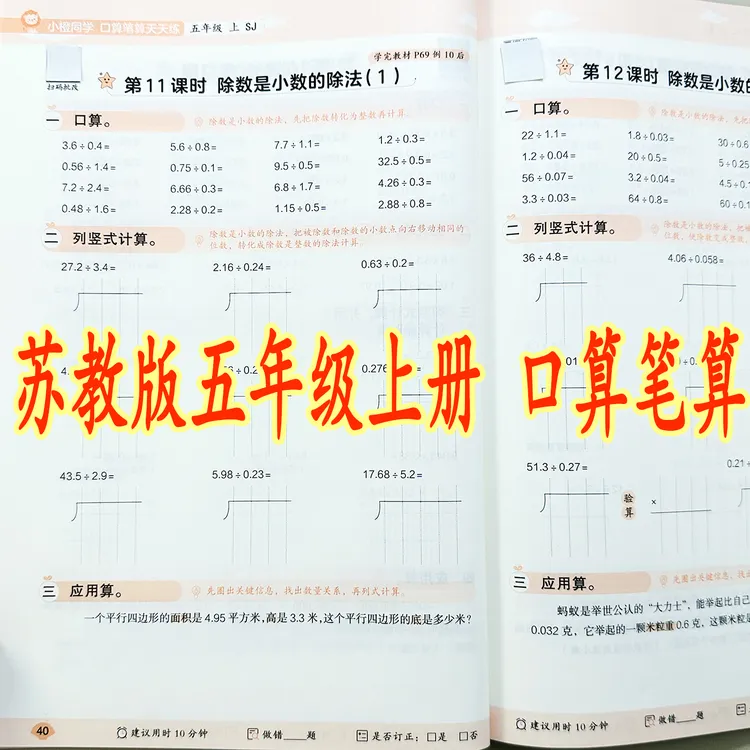 小橙同学 口算笔算天天练 五年级 上 SJ
学完教材 P69 例 10 后
扫码批改
第11课时 除数是小数的除法(1)
一 口算。 除数是小数的除法,先把除数转化为整数再计算。
3.6÷0.4= 5.6÷0.8= 7.7÷1.1= 1.2÷0.3=
0.56÷1.4= 0.75÷0.1= 9.5÷0.5= 32.5÷0.5=
7.2÷2.4= 6.66÷0.3= 6.8÷1.7= 4.26÷0.3=
0.48÷1.6= 2.28÷0.2= 1.15÷0.5= 2.88÷0.8=
二 列竖式计算。 除数是小数的除法,把被除数和除数的小数点向右移动相同的
位数,转化成除数是整数的除法计算。
27.2÷3.4= 2.16÷0.24= 0.63÷0.2=
0.276
43.5÷2.9= 5.98÷0.23= 17.68÷5.2=
三 应用算。 先圈出关键信息,找出数量关系,再列式计算。
一个平行四边形的面积是4.95平方米,高是3.3米,这个平行四边形的底是多少米?
40
建议用时10分钟 做错 题 是否订正: 是 否
第12课时 除数是小数的
一 口算。 除数是小数的除法,先把
22÷1.1= 1.8÷0.03= 30÷0.6
1.2÷0.04= 20÷0.5= 5÷0.25
56÷0.07= 3.2÷0.04= 4.5÷0.
3.3÷0.03= 64÷0.8= 60÷0.
二 列竖式计算。 除数是小数的除法,把被
位数,使除数变成整数,
36÷4.8= 4.06÷0.058=
51.3÷0.27= 0.21÷
验算
×
三 应用算。 先圈出关键信息,找出
蚂蚁是举世公认的“大力士”,能举起比自己
0.032 克,它举起的一颗米粒重0.6克,这颗米粒是
建议用时10分钟 做错 题
苏教版五年级上册 口算笔算